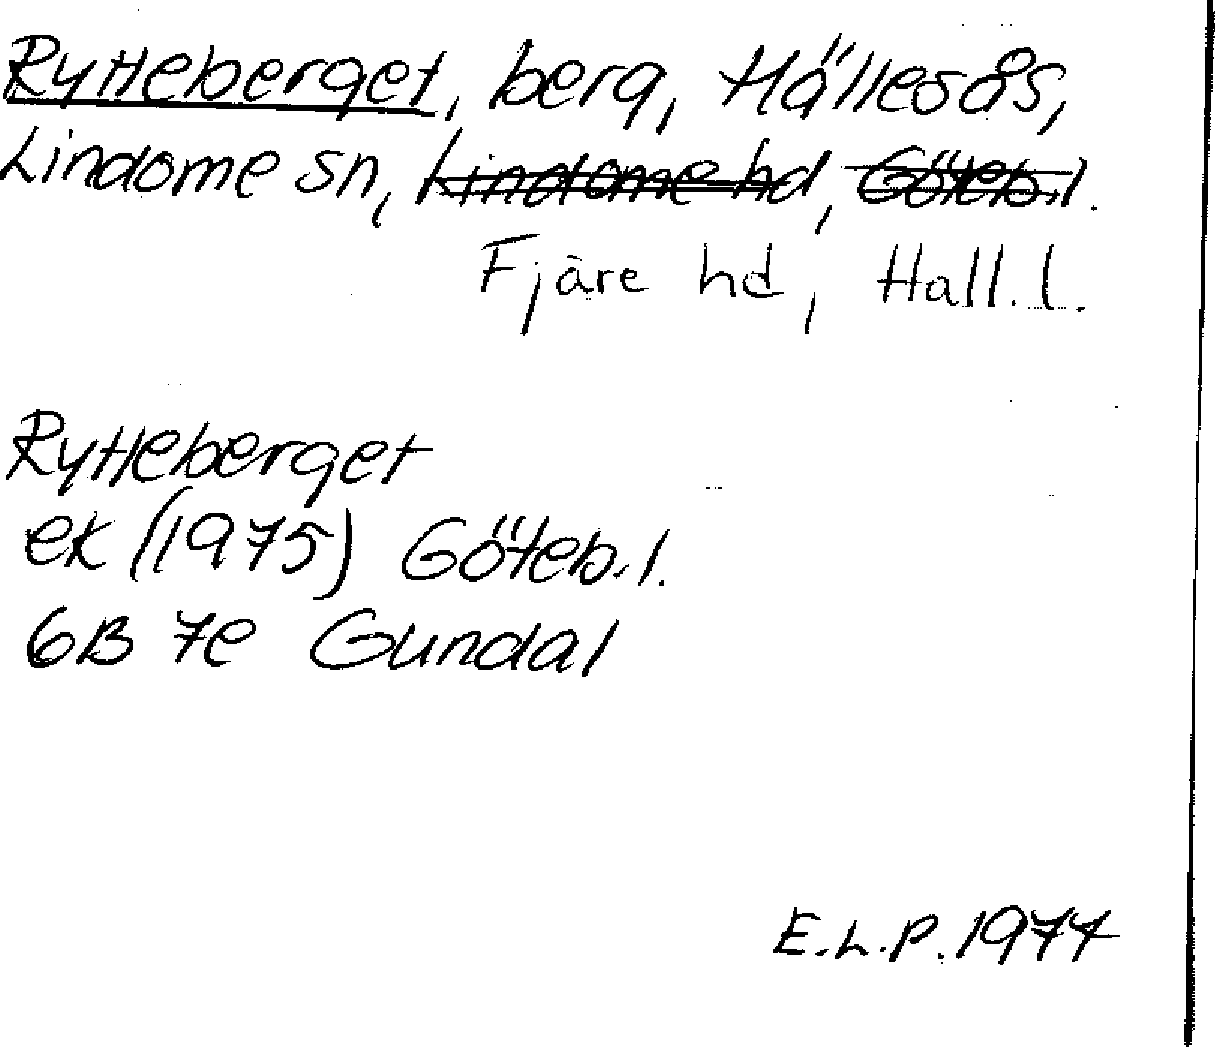 Rytteberget, berg, Hällesås,
Lindome sn, Lindome hd, Göteb.l.
Fjäre hd, Hall.l.
Rytteberget
ek (1975) Göteb.l.
6B 7e Gundal
E.L.P. 1977